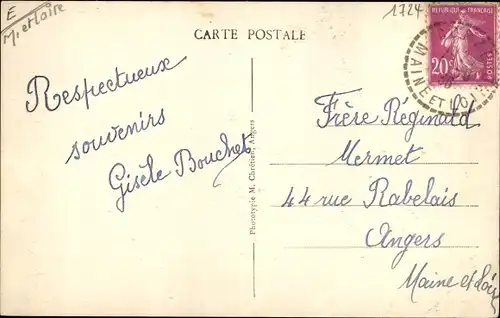 E
M. et Loire
1724
CARTE POSTALE
REPUBLIQUE FRANCAISE
20c
POSTES
MAINE ET LOIRE
Respectueux
souvenirs
Gisèle Bouchet
Phototypie M. Chrétien, Angers
Frère Réginald
Mermet
44 rue Rabelais
Angers
Maine et Loire